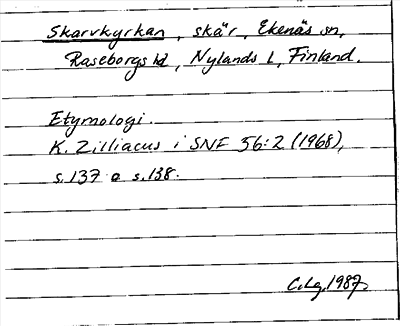 Skarvkyrkan, skär, Ekenäs sn,
Raseborgs hd, Nylands l, Finland.
Etymologi.
K. Zilliacus i SNF 56:2 (1968),
s. 137 o s. 138.
C. Lg. 1987.